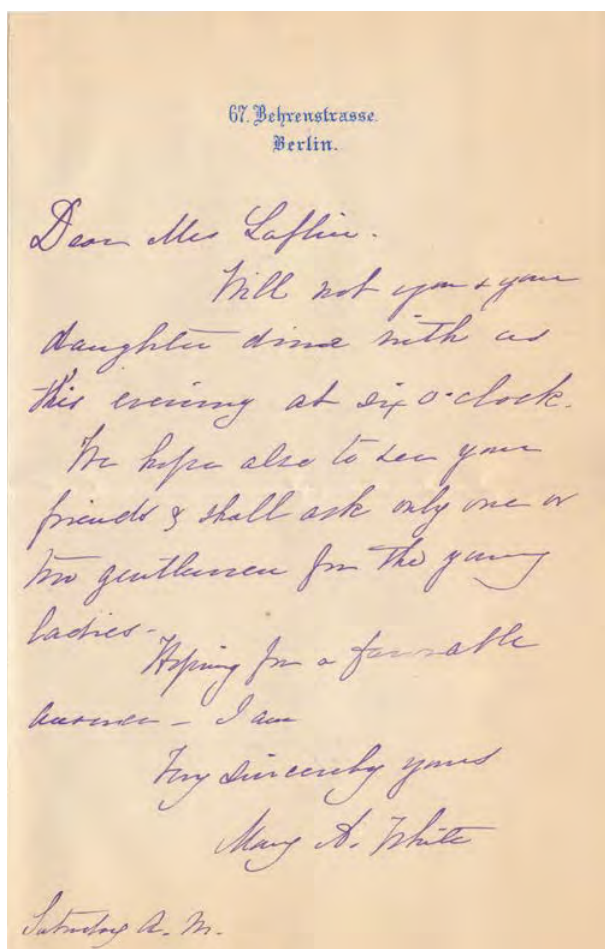 67. Behrenstrasse.
Berlin.
Dear Mrs Laflin.
Will not you & your
daughter dine with us
this evening at six o'clock.
We hope also to see your
friends & shall ask only one or
two gentlemen for the young
ladies-
Hoping for a favorable
answer - I am
Very sincerely yours
Mary A. White
Saturday A. M.